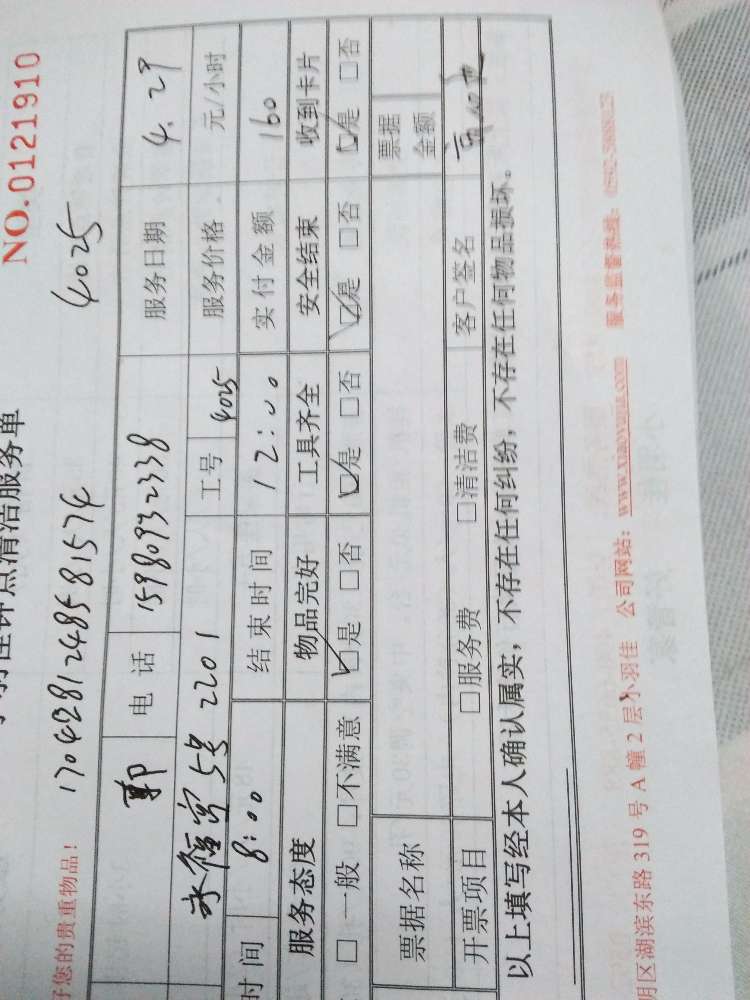 NO.0121910
钟点清洁服务单
好您的贵重物品! 17042812485581574 4025
郭 电话 15980932338 服务日期 4.29
永福宫5号2201 工号 4025 服务价格 元/小时
时间 8:00 结束时间 12:00 实付金额 160
服务态度 物品完好 工具齐全 安全结束 收到卡片
□一般 □不满意 ☑是 □否 ☑是 □否 ☑是 □否 ☑是 □否
票据名称 票据金额
开票项目 □服务费 □清洁费 客户签名
以上填写经本人确认属实，不存在任何纠纷，不存在任何物品损坏。
明区湖滨东路319号A幢2层小羽佳 公司网站: www.xiaoyujia.com 服务监督热线: